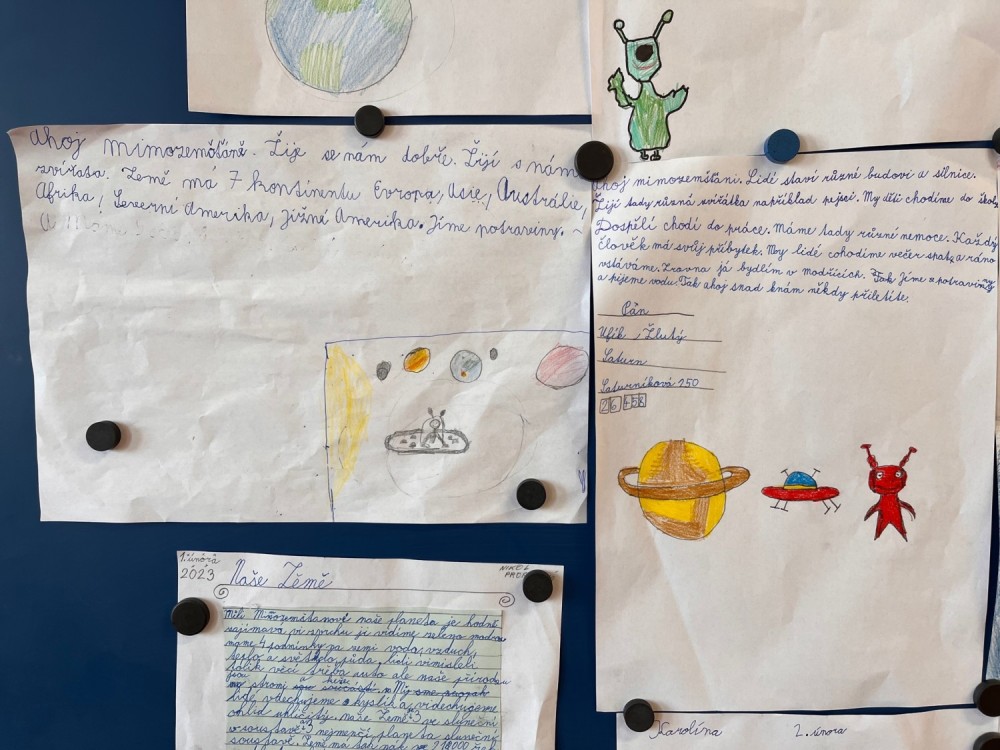 ahoj mimozemšťáně. Žije se nám dobře. Žijí s námi
zvířata. Země má 7 kontinentu Evropa, Asie, Austrálie,
Afrika, Severní Amerika, Jižné Amerika. Jíme potraviny.
ahoj mimozemšťani. Lidé staví různé budovi a silnice.
Žijí tady různá zvířátka například pejsci. My děti chodíme do školy
Dospělí chodí do práce. Máme tady různé nemoce. Každý
člověk má svůj příbytek. My lidé cohodíme večer spát a ráno
vstáváme. Zrovna já bydlím v modřicích. Tak jíme potraviny
a pijeme vodu. Tak ahoj snad knám někdy přiletíte.
Pán
Ufík Žlutý
Saturn
Saturníková 250
26 458
1. února
2023
Naše Země
NIKOL
milí Mimozemšťanové naše planeta je hodně
zajímavá, vi zvrchu ji vidíme zeleno modrou
máme 4 podmínky na zemi voda, vzduch,
teplo a světlo, půda, lidi vimisleli
tolik věcí třeba auto ale naše příroda
stromi
lidé vdechujeme kyslík a videchujeme
oxid uhličitý. naše Země 3 ve sluneční
soustavě 3 nejmenčí planeta sluneční
soustavě. Země má
Karolína
2. února